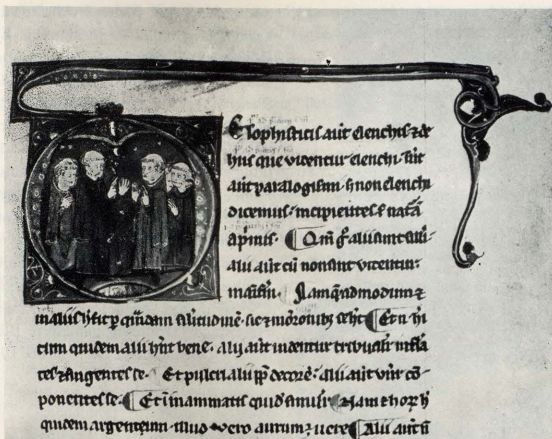 E sophisticis aut elenchis ⁊ de
hiis que videntur elenchi sūt
aūt paralogismi s non elenchi
dicemus incipientes natā
a pmis Qm̄ g alii sunt sill̄i
alii aūt cū non sint videntur
mānifm Nam quēadmodum ⁊
in aliis h fit p quādam similitudinē sic ⁊ in oronibus se ht Et n hi
tum quidem alii hn̄t bene alii aūt videntur tribualit infla
tes ⁊ fingentes se Et pulcri alii pp decorē alii aūt vnr cō
ponentes se Et in inanimatis quid similr Nam ⁊ hor h
quidem argentum illud vero aurum ⁊ vere Alia autē